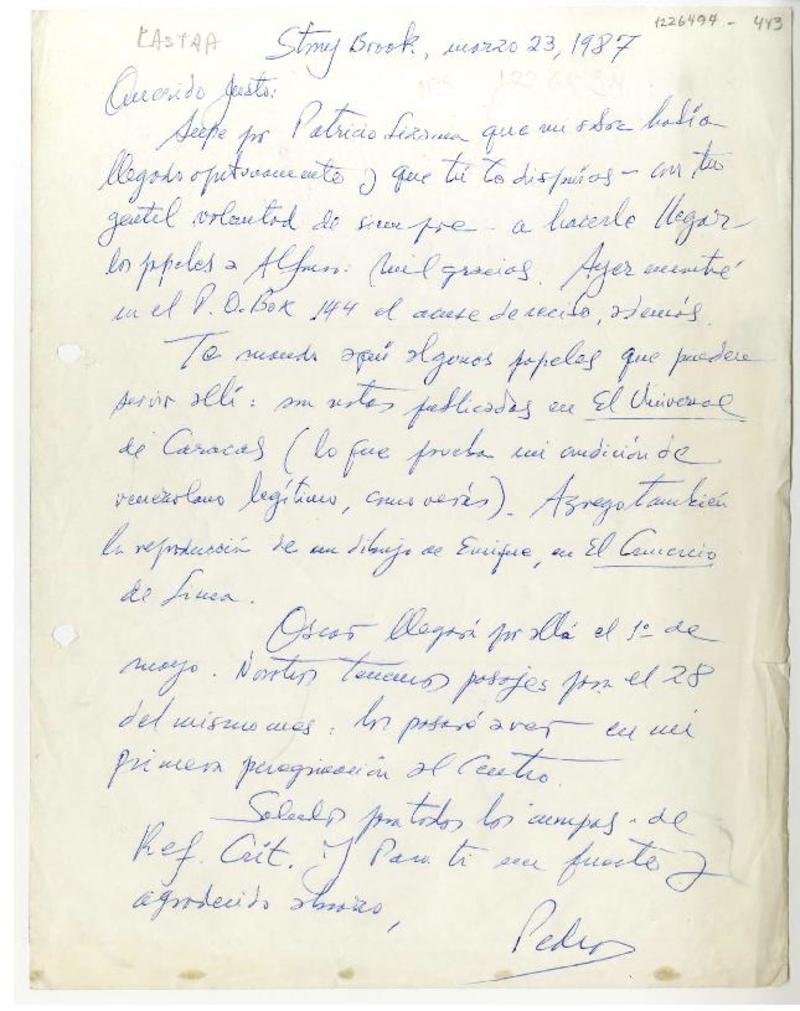 1226494 - 443
LASTRA
Stony Brook, marzo 23, 1987
Querido Justo:
Supe por Patricio Lizama que mi sobre había
llegado oportunamente y que tú te disponías - con tu
gentil voluntad de siempre - a hacerle llegar
los papeles a Alfonso: Mil gracias. Ayer encontré
en el P.O. Box 144 el acuse de recibo, además.
Te mando aquí algunos papeles que pueden
servir allí: notas publicadas en El Universal
de Caracas (lo que prueba mi condición de
venezolano legítimo, como verás). Agrego también
la reproducción de un dibujo de Enrique, en El Comercio
de Lima.
Oscar llegará por allá el 1º de
mayo. Nosotros tenemos pasajes para el 28
del mismo mes: los pasaré a ver en mi
primera peregrinación al Centro.
Saludos para todos los compas. de
Ref. Crít. Y para ti un fuerte y
agradecido abrazo,
Pedro